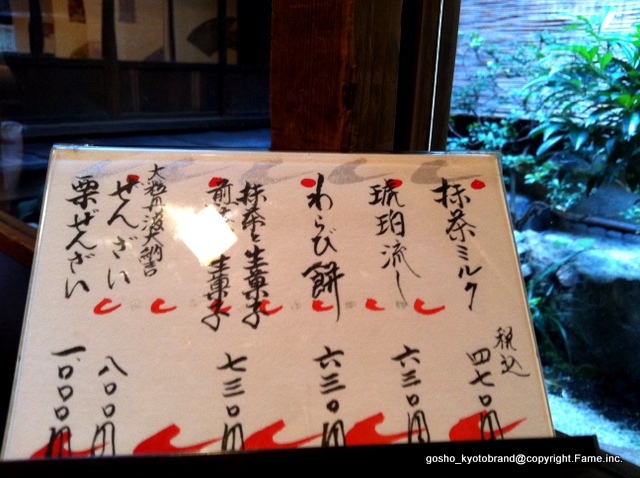 抹茶ミルク
税込
四七〇円
琥珀流し
六三〇円
わらび餅
六三〇円
抹茶と生菓子
煎茶と生菓子
七三〇円
大粒丹波大納言
ぜんざい
八〇〇円
栗ぜんざい
一、〇〇〇円
gosho_kyotobrand@copyright.Fame.inc.